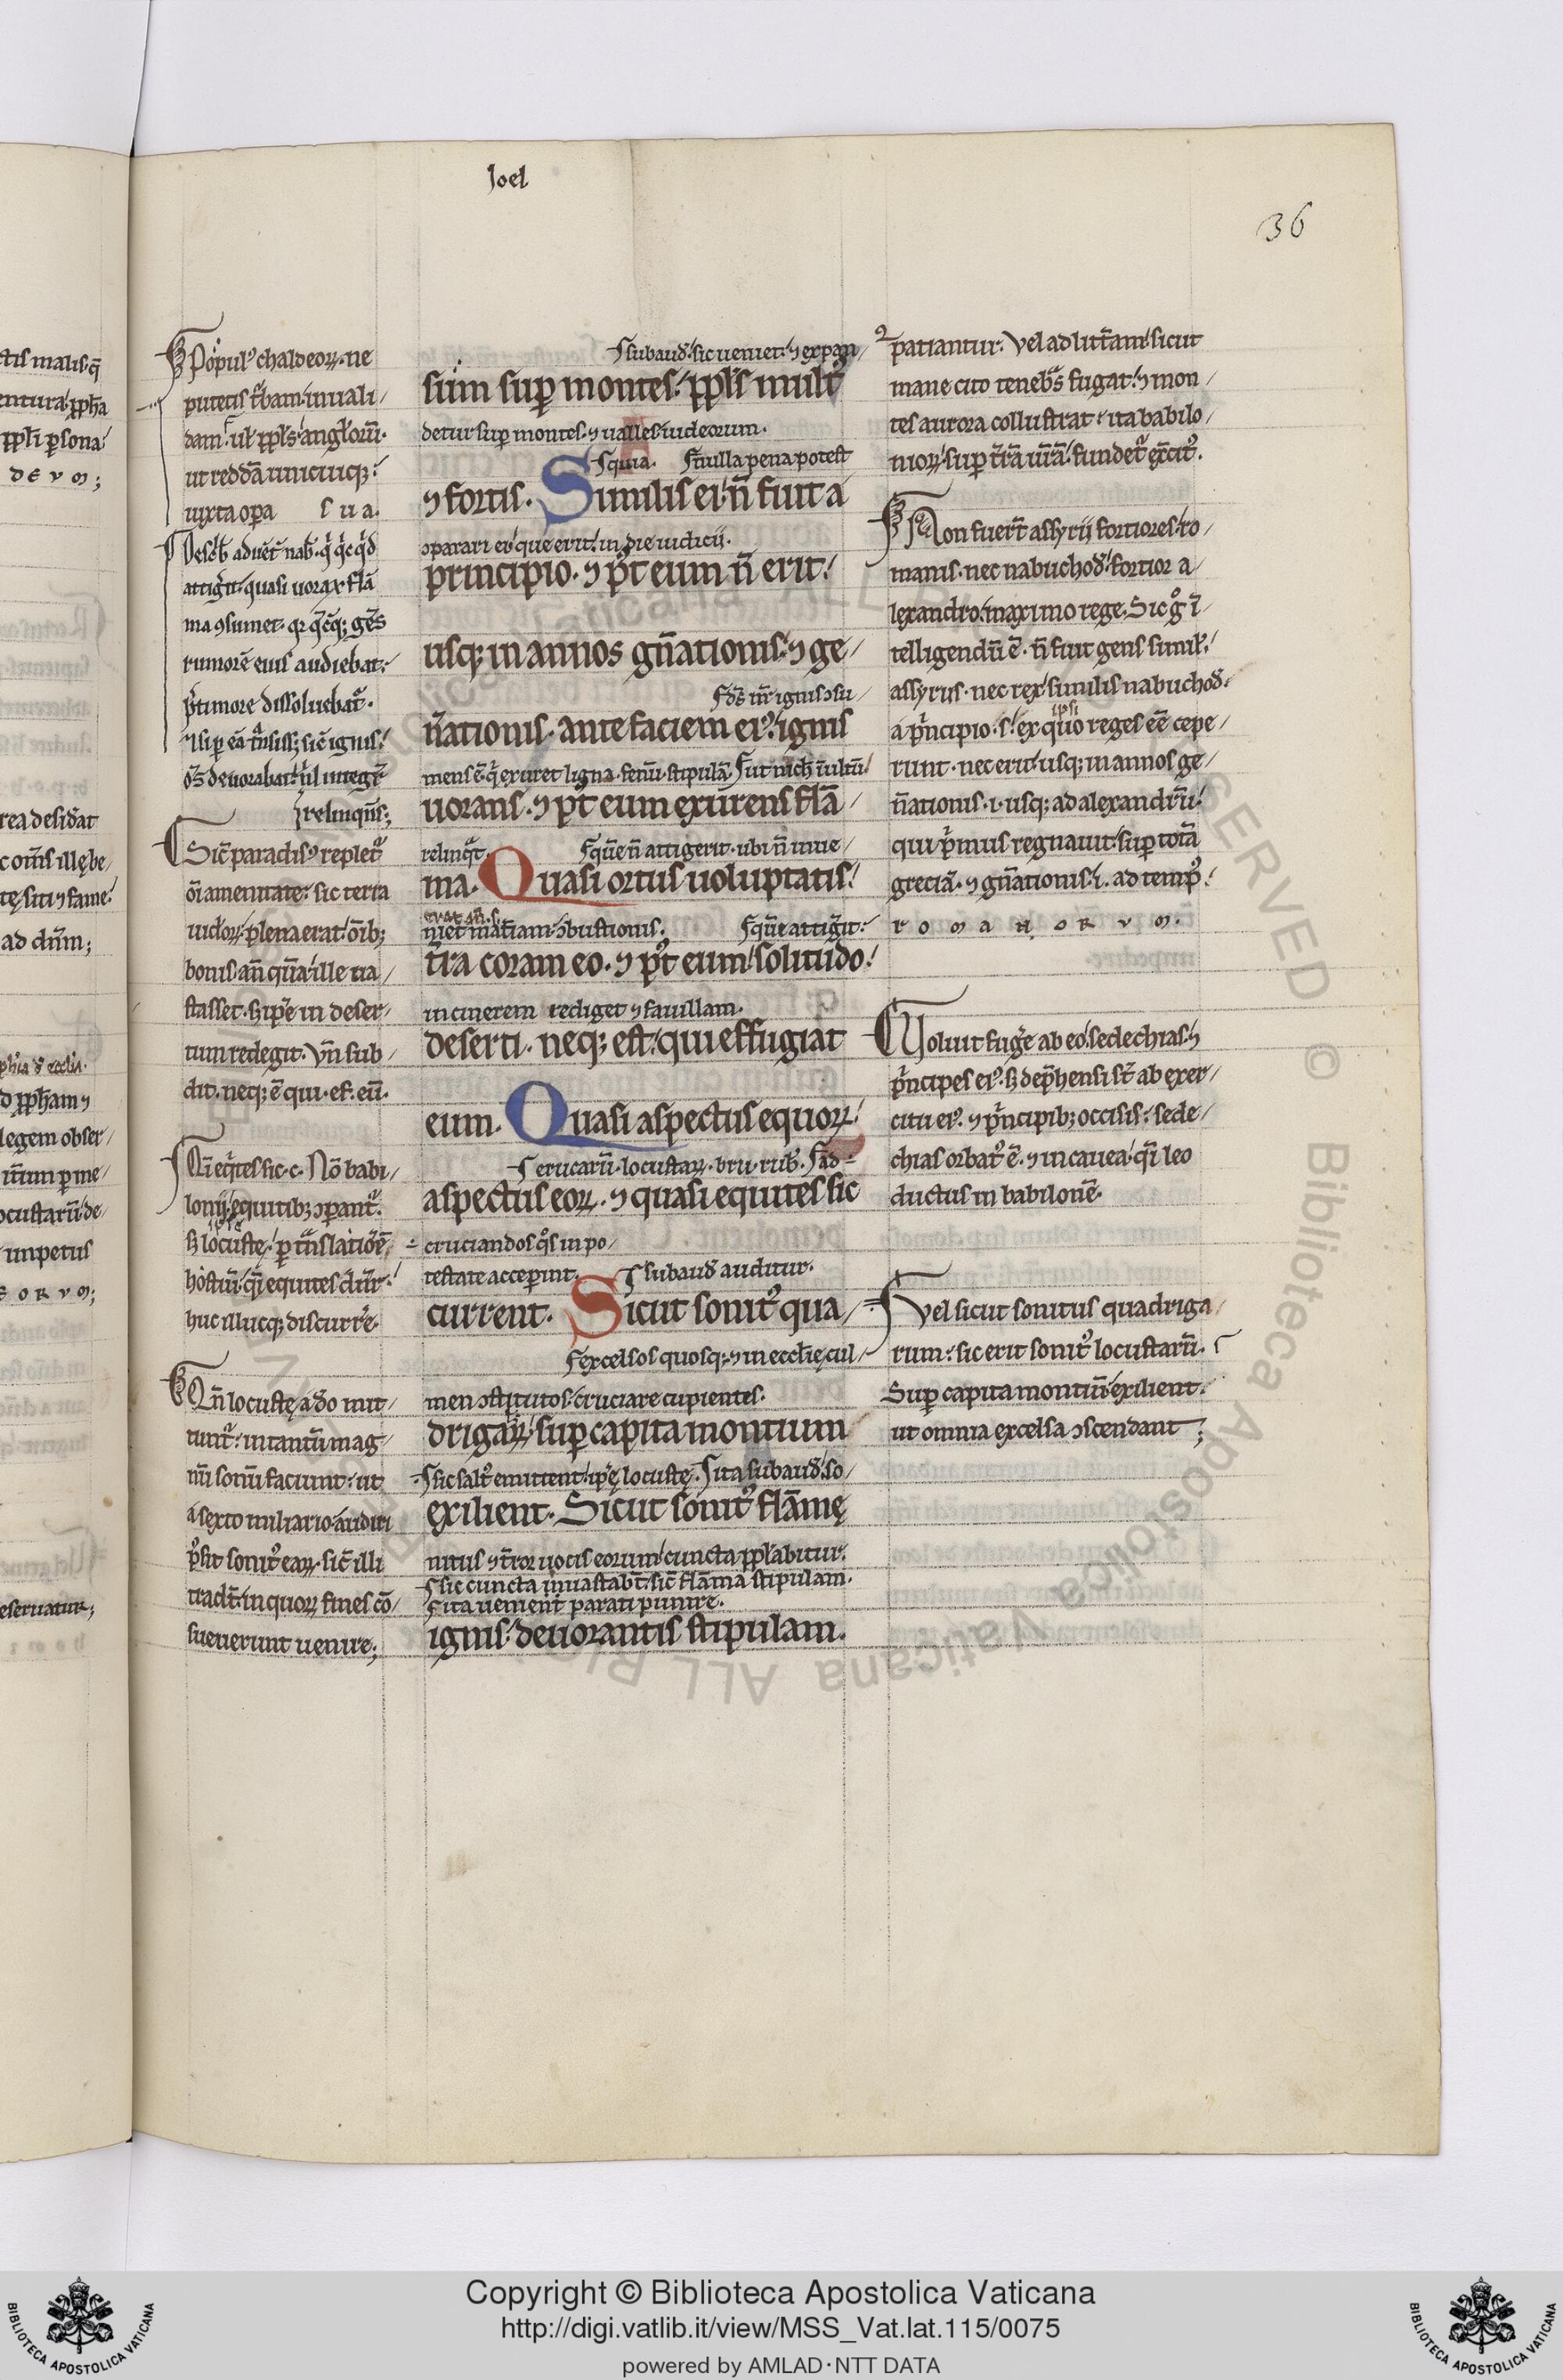 Joel
36
Popul᾽ chaldeoꝝ. ne
putetis t̃bam inuali/
dam. ut̃ pp̃ls angl̃orũ.
ut reddã unicuiq;
iuxta opa s u a.
attigit. quasi uorax flã
ma ꝯsumet.
rumorẽ eius audiebat.
timore dissoluebat̃.
õs deuorabat. nil integr̃
relinquẽs;
Sic̃ paradis᾽ replet᾽
õi amenitate: sic terra
iudeoꝝ plena erat õib;
bonis añ quã ille ua/
stasset. s; ipẽ in deser/
tum redegit. Vñ sub/
dit. neq; ẽ qui. ef. eũ.
Nõ babi/
lonij equitib; ꝯparant̃.
s; locustę. p trãnslatiõẽ
hostiũ. q̃i equites dñr.
huc illucq; discurrẽ.
Qñ locustę a dõ mit/
tunt̃. in tantũ mag/
nũ sonũ faciunt. ut
a sexto miliario audiri
p̃sit sonit᾽ eaꝝ. sic̃ illi
tradt̃. in quoꝝ fines cõ/
sueuerunt uenire;
subaud̃. sic ueniet. ⁊ expan/
sum sup montes. pp̃ls mult᾽
detur sup montes. ⁊ ualles iudeorum.
quia. nulla pena potest
⁊ fortis. Similis ei ñ fuit a
ꝯparari ei que erit in die iudicij.
principio. ⁊ p᾽t eum ñ erit.
usq; in annos gñationis. ⁊ ge/
d̃s ñr ignis ꝯsu/
ñationis. ante faciem ei᾽. ignis
mens ẽ. q̃ exuret ligna. fenũ. stipulã. ut nich̃ inultũ
uorans. ⁊ p᾽t eum exurens flã/
relinq̃t. quẽ ñ attigerit. ubi ñ inue/
ma. Quasi ortus uoluptatis.
niet mat̃iam ꝯbustionis. quẽ attigit.
t̃ra coram eo. ⁊ p᾽t eum. solitudo.
in cinerem rediget ⁊ fauillam.
deserti. neq; est. qui effugiat
eum. Quasi aspectus equoꝝ.
erucarũ. locustaꝝ. bru. rub̃. ad
aspectus eoꝝ. ⁊ quasi equites sic
cruciandos q᾽s in po/
testate acceperint. subaud̃ auditur.
current. Sicut sonit᾽ qua/
excelsos quosq;. ⁊ in eccl̃ię cul/
men ꝯstitutos. cruciare cupientes.
drigaꝝ. sup capita montium
sic salt᾽ emittent. ipę locustę. ita subaud̃. so/
exilient. Sicut sonit᾽ flãmę
nitus ⁊ t̃ror uocis eorum cuncta pp̃labitur.
sic cuncta inuastabt̃. sic̃ flãma stipulam.
ita uenient parati punire.
ignis. deuorantis stipulam.
patiantur. Vel ad litt̃am sicut
mane cito tenebᷓs fugat. ⁊ mon/
tes aurora collustrat. ita babilo/
nioꝝ sup t̃rã ur̃ã. fundet᾽ ex̃cit᾽.
Non fuert̃ assyrij fortiores ro/
manis. nec nabuchod̃. fortior a/
lexandro maximo rege. Sic gͦ ĩ/
telligendũ ẽ. ñ fuit gens simil᾽
assyriis. nec rex similis nabuchod̃.
ipsi
a p̃ncipio. s. ex quo reges eẽ cepe/
runt. nec erit usq; in annos ge/
ñationis. i. usq; ad alexandrũ.
qui p̃mus regnauit. sup totã
greciã. ⁊ gñationis. i. ad temp᾽.
r o m a n o R v m.
Voluit fugẽ ab eo sedechias. ⁊
p̃ncipes ei᾽. s; dep̃hensi st̃ ab exer/
citu ei᾽. ⁊ p̃ncipib; occisis. sede/
chias orbat᾽ ẽ. ⁊ in cauea. q̃i leo
ductus in babilonẽ.
Vel sicut sonitus quadriga/
rum. sic erit sonit᾽ locustarũ.
Sup capita montiũ exilient.
ut omnia excelsa ꝯscendant;
Copyright © Biblioteca Apostolica Vaticana
http://digi.vatlib.it/view/MSS_Vat.lat.115/0075
powered by AMLAD·NTT DATA
BIBLIOTECA APOSTOLICA VATICANA
BIBLIOTECA APOSTOLICA VATICANA